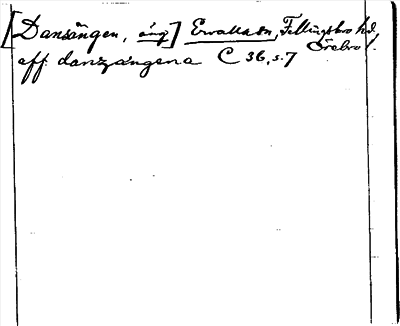 [Dansängen, äng] Ervalla sn, Fellingsbro hd.
Örebro l.
aff danzangena C 36, s. 7